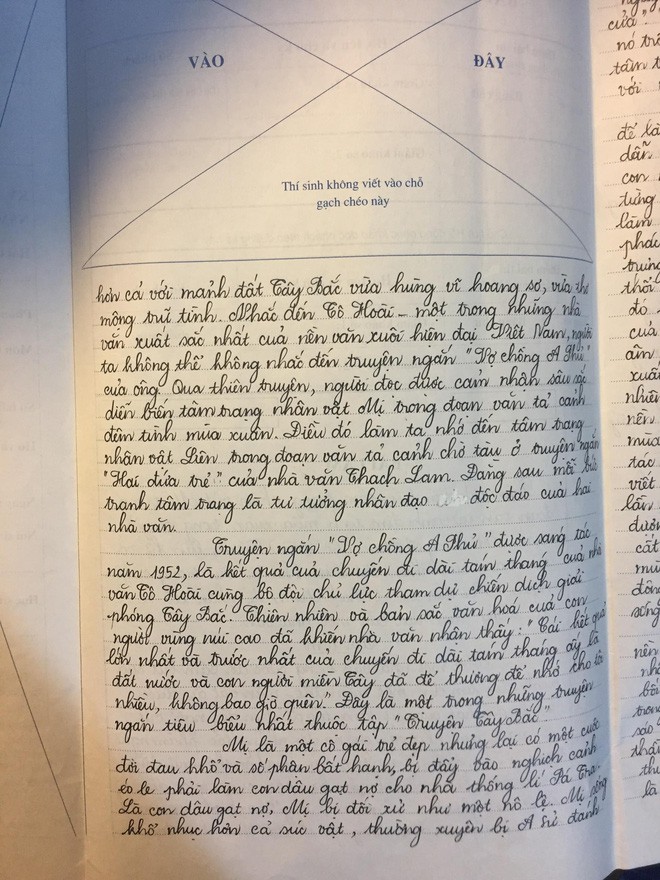 VÀO
ĐÂY
Thí sinh không viết vào chỗ
gạch chéo này
hơn cả với mảnh đất Tây Bắc vừa hùng vĩ hoang sơ, vừa thơ
mộng trữ tình. Nhắc đến Tô Hoài - một trong những nhà
văn xuất sắc nhất của nền văn xuôi hiện đại Việt Nam, người
ta không thể không nhắc đến truyện ngắn "Vợ chồng A Phủ"
của ông. Qua thiên truyện, người đọc được cảm nhận sâu sắc
diễn biến tâm trạng nhân vật Mị trong đoạn văn tả cảnh
đêm tình mùa xuân. Điều đó làm ta nhớ đến tâm trạng
nhân vật Liên trong đoạn văn tả cảnh chờ tàu ở truyện ngắn
"Hai đứa trẻ" của nhà văn Thạch Lam. Đằng sau mỗi bức
tranh tâm trạng là tư tưởng nhân đạo độc đáo của hai
nhà văn.
Truyện ngắn "Vợ chồng A Phủ" được sáng tác
năm 1952, là kết quả của chuyến đi dài tám tháng của nhà
văn Tô Hoài cùng bộ đội chủ lực tham dự chiến dịch giải
phóng Tây Bắc. Thiên nhiên và bản sắc văn hoá của con
người vùng núi cao đã khiến nhà văn nhận thấy: "Cái kết quả
lớn nhất và trước nhất của chuyến đi dài tám tháng ấy là
đất nước và con người miền Tây đã để thương để nhớ cho tôi
nhiều, không bao giờ quên." Đây là một trong những truyện
ngắn tiêu biểu nhất thuộc tập "Truyện Tây Bắc".
Mị là một cô gái trẻ đẹp nhưng lại có một cuộc
đời đau khổ và số phận bất hạnh, bị đẩy vào nghịch cảnh
éo le phải làm con dâu gạt nợ cho nhà thống lí Pá Tra.
Là con dâu gạt nợ, Mị bị đối xử như một nô lệ. Mị sống
khổ nhục hơn cả súc vật, thường xuyên bị A Sử đánh
của"
nó
với
để là
con
từng
làm
thời
đó
của
xuất
nên
mùa
tác
viết
lần
được
cất
đông
sống
nên
trong
là